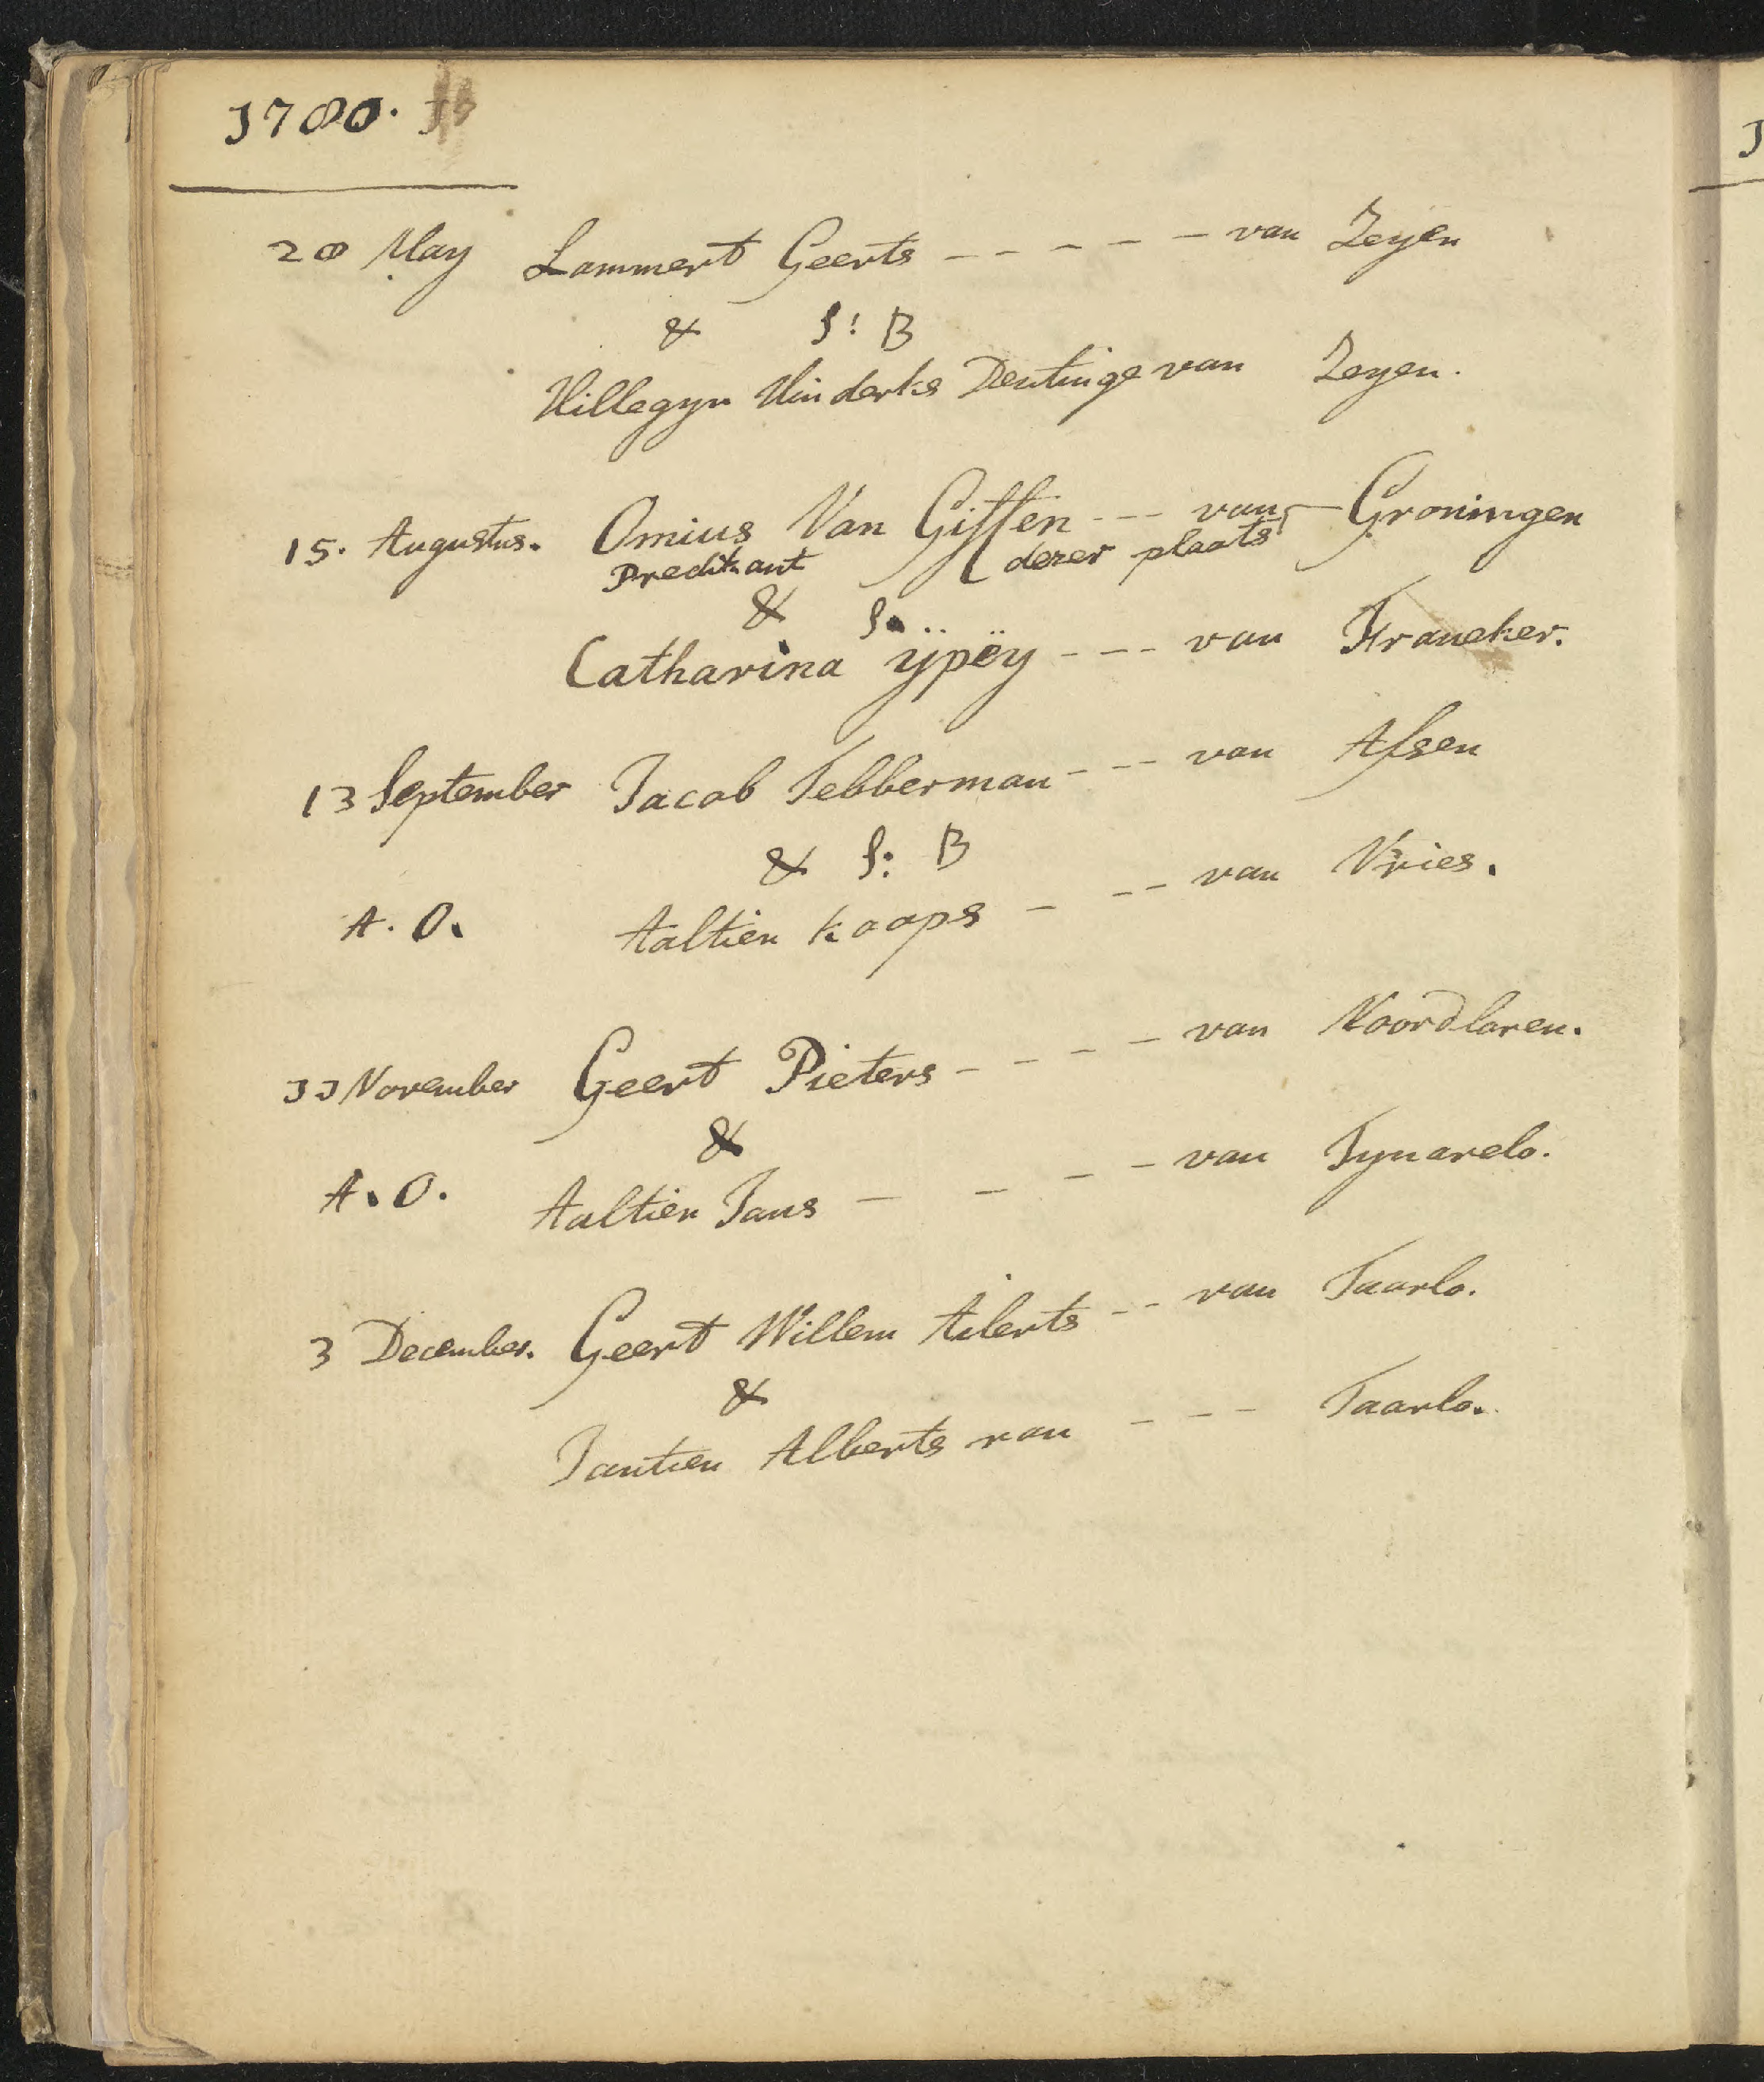 1780.
28 May Lammert Geerts - - - - - van Zeyen
& S: B
Hillegyn Hinderks Dentinge van Zeyen.
15. Augustus. Omius Van Giffen - - - van Groningen
Predikant (dezer plaats)
& S.
Catharina ÿpëy - - - van Franeker.
13 September Jacob Tebberman - - - van Assen
& S: B
A. O. Aaltien Koops - - - van Vries.
11 November Geert Pieters - - - - van Noordlaren.
&
A. O. Aaltien Jans - - - - van Tynarelo.
3 December. Geert Willem Ailerts - - van Taarlo.
&
Jantien Alberts van - - - Taarlo.